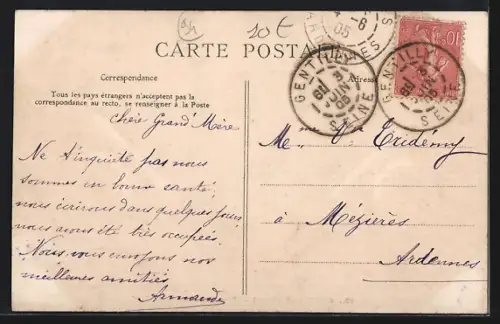 10€
CARTE POSTALE
Correspondance
Adresse
Tous les pays étrangers n'acceptent pas la
correspondance au recto, se renseigner à la Poste
chère Grand' Mère
Ne t'inquiète pas nous
sommes en bonne santé;
nous écrirons dans quelques jours,
nous avons été très occupées.
Nous vous envoyons nos
meilleures amitiés
Armande
GENTILLY
JUIN
05
SEINE
GENTILLY
SEINE
10
Mme Vve Tridémy
à Mézières
Ardennes